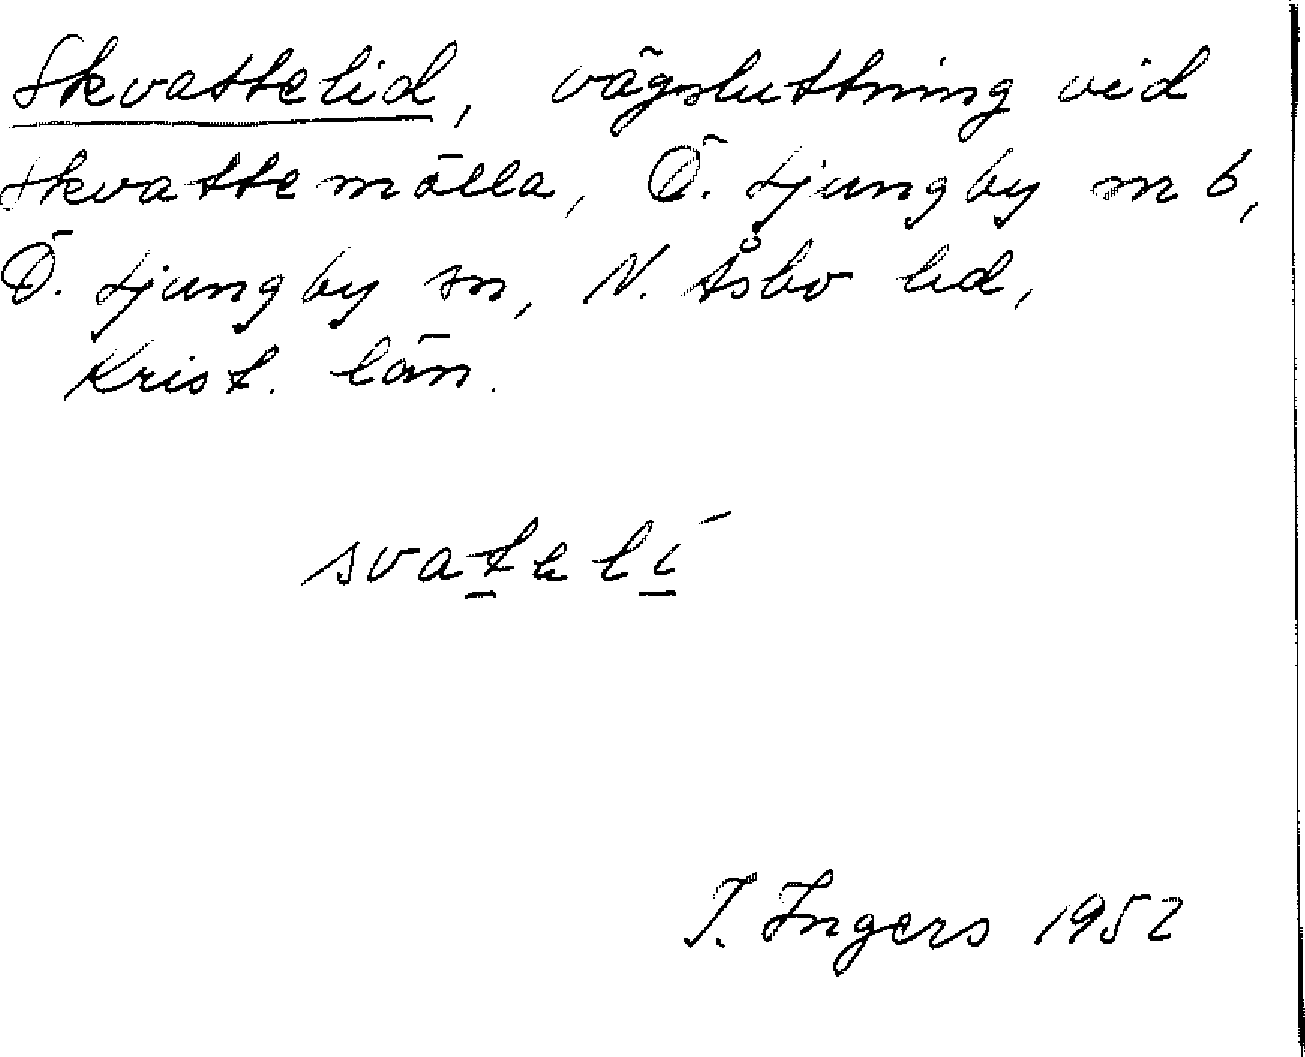 Skvattelid, vägsluttning vid
Skvattemölla, Ö. Ljungby nr 6,
Ö. Ljungby sn, N. Åsbo hd,
Krist. län.
svatelí
I. Ingers 1952